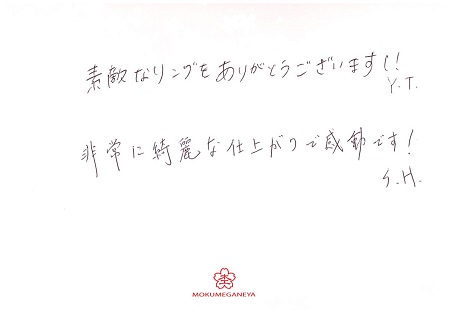 素敵なリングをありがとうございます!!
Y.T.
非常に綺麗な仕上がりで感動です!
S.H.
MOKUMEGANEYA